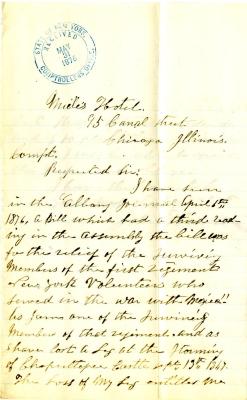 STATE OF NEW YORK
RECEIVED
MAY
31
1876
COMPTROLLERS OFFICE
Hotel.
75 Canal street
Chicago Illinois.
Compt.
Respected Sir.
I have seen
in the Albany Journal April 6th
1876, A Bill which had a third read
ing in the Assembly the bill was
for the relief of the surviving
Members of the first regiment
New York Volunteers who
served in the war with Mexico
as I am one of the surviving
Members of that regiment and as
I have lost a Leg at the storming
of Castle Sept 13th 1847.
The loss of My Leg entitles me